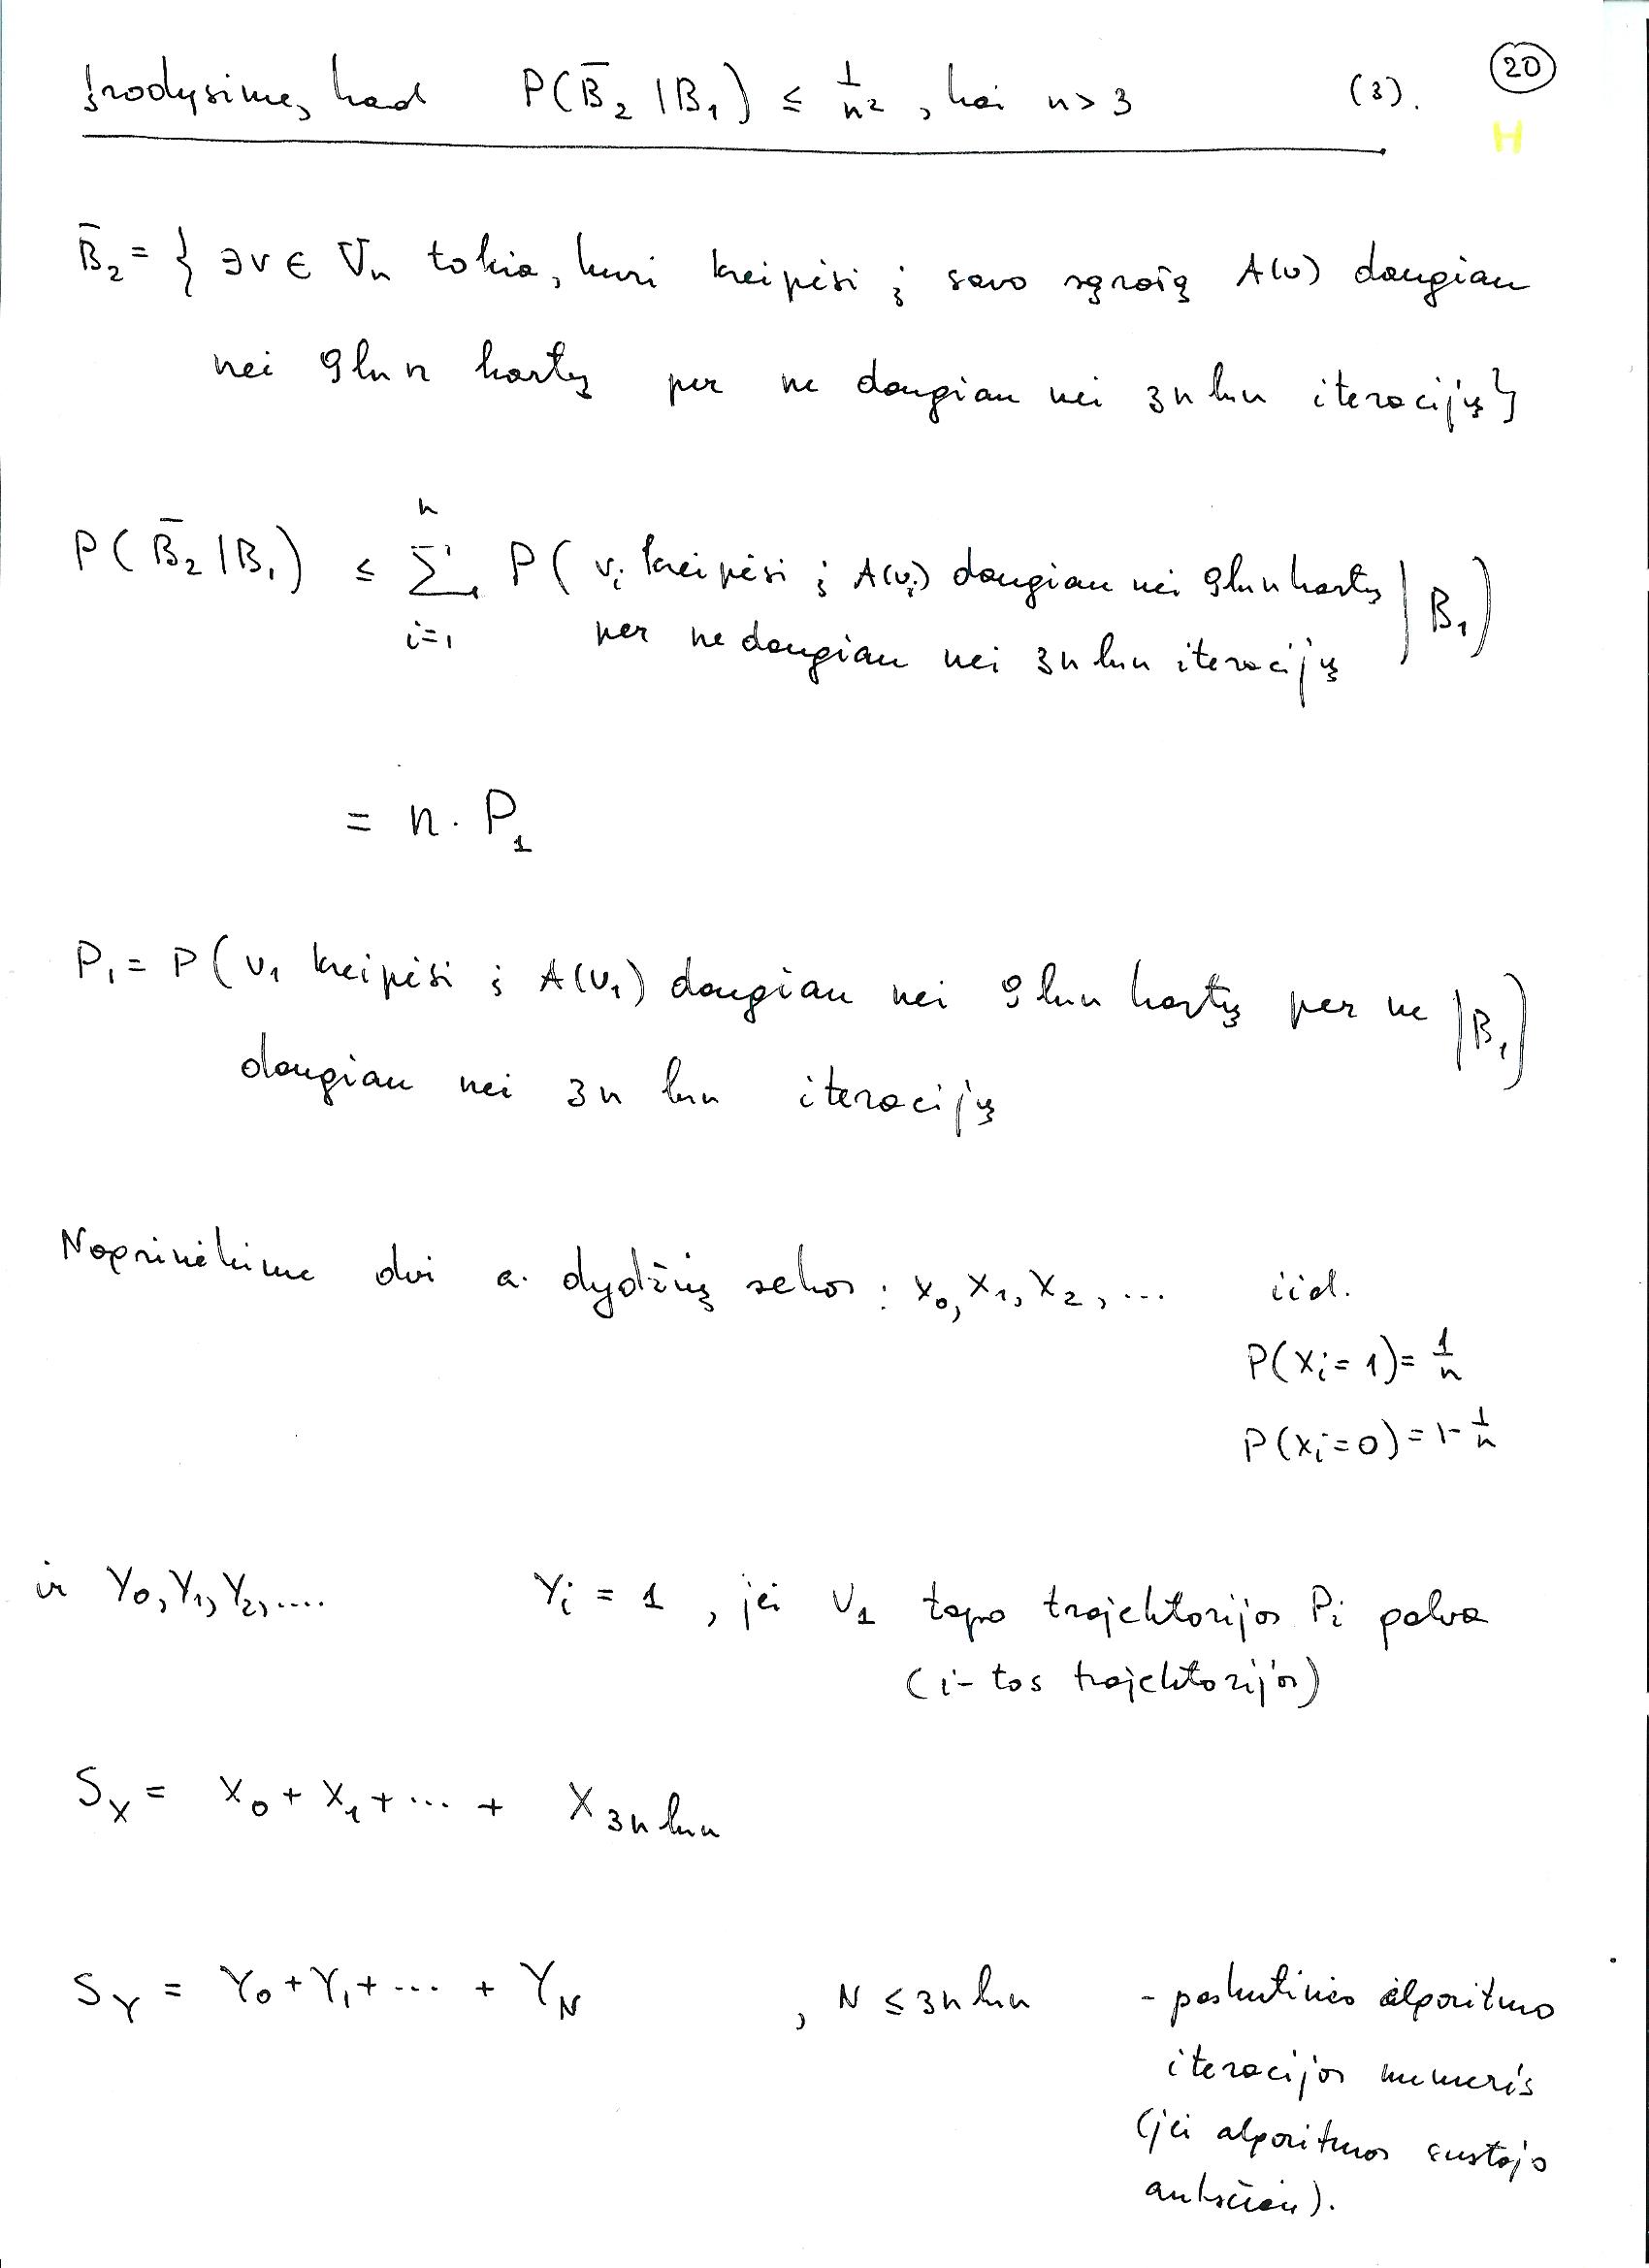 20
Įrodysime, kad P(B̄₂ | B₁) ≤ 1/n², kai n > 3 (3).
H
B̄₂ = { ∃v ∈ Vₙ tokia, kuri kreipėsi į savo sąrašą A(v) daugiau
nei 9 ln n kartų per ne daugiau nei 3n ln n iteracijų}
P(B̄₂ | B₁) ≤ ∑ᵢ₌₁ⁿ P( vᵢ kreipėsi į A(vᵢ) daugiau nei 9 ln n kartų | B₁)
per ne daugiau nei 3n ln n iteracijų
= n · P₁
P₁ = P( v₁ kreipėsi į A(v₁) daugiau nei 9 ln n kartų per ne | B₁)
daugiau nei 3n ln n iteracijų
Naprinėkime dvi a. dydžių sekas: X₀, X₁, X₂, ... iid.
P(Xᵢ = 1) = 1/n
P(Xᵢ = 0) = 1 - 1/n
ir Y₀, Y₁, Y₂, .... Yᵢ = 1, jei v₁ tapo trajektorijos Pᵢ galva
(i-tos trajektorijos)
S_X = X₀ + X₁ + ... + X_{3n ln n}
S_Y = Y₀ + Y₁ + ... + Y_N , N ≤ 3n ln n - paskutinės algoritmo
iteracijos numeris
(jei algoritmas sustojo
anksčiau).